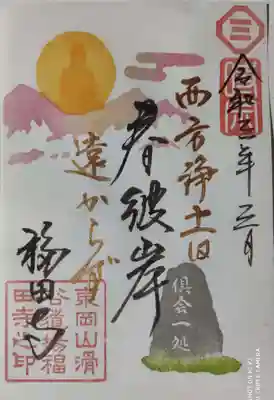 令和三年三月
西方浄土は
春彼岸
遠からず
福田寺
倶会一処
東岡山滑
谷道場福
田寺之印